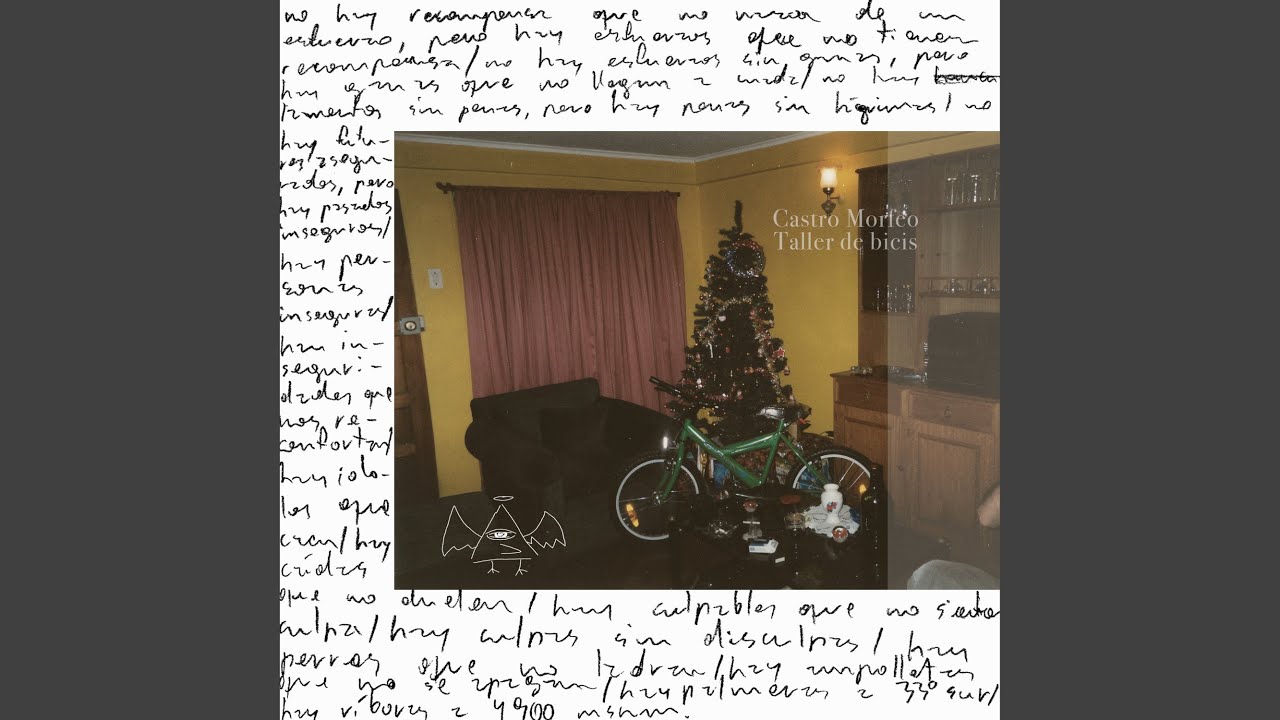 no hay recompensa que no nazca de un
esfuerzo, pero hay esfuerzos que no tienen
recompensa/no hay esfuerzos sin ganas, pero
hay ganas que no llegan a nada/no hay
lamentos sin penas, pero hay penas sin lágrimas/no
hay futu-
ros asegu-
rados, pero
hay pasados
inseguros/
hay per-
sonas
inseguras/
hay in-
seguri-
dades que
nos re-
confortan/
hay ídolo-
los que
caen/hay
caídas
que no duelen/hay culpables que no sienten
culpa/hay culpas sin disculpas/hay
perros que no ladran/hay ampolletas
que no se apagan/hay palmeras a 33º sur/
hay víboras a 4900 msnm.
Castro Morfeo
Taller de bicis